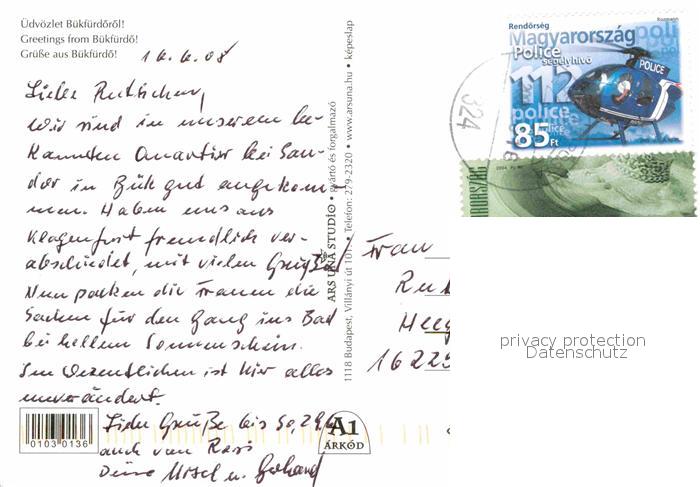 Üdvözlet Bükfürdőről!
Greetings from Bükfürdő!
Grüße aus Bükfürdő!
16.6.08
Wir sind in unserem be-
kannten Quartier bei San-
dor in Bük gut angekom-
men. Haben uns aus
Klagenfurt freundlich ver-
abschiedet, mit vielen Grüßen
Nun packen die Frauen die
Sachen für den Gang ins Bad
bei hellem Sonnenschein.
Im Wesentlichen ist hier alles
unverändert.
Liebe Grüße bis So, 29.6.
auch von
Deine u. Gerhard
0103 0136
A1
ÁRKÓD
ARS UNA STUDIO • gyártó és forgalmazó
1118 Budapest, Villányi út 101. • Telefon: 279-2320 • www.arsuna.hu • képeslap
Frau
16225
Rendőrség
Magyarország
Police
segélyhívó
112
police
85 Ft
POLICE
324
privacy protection
Datenschutz